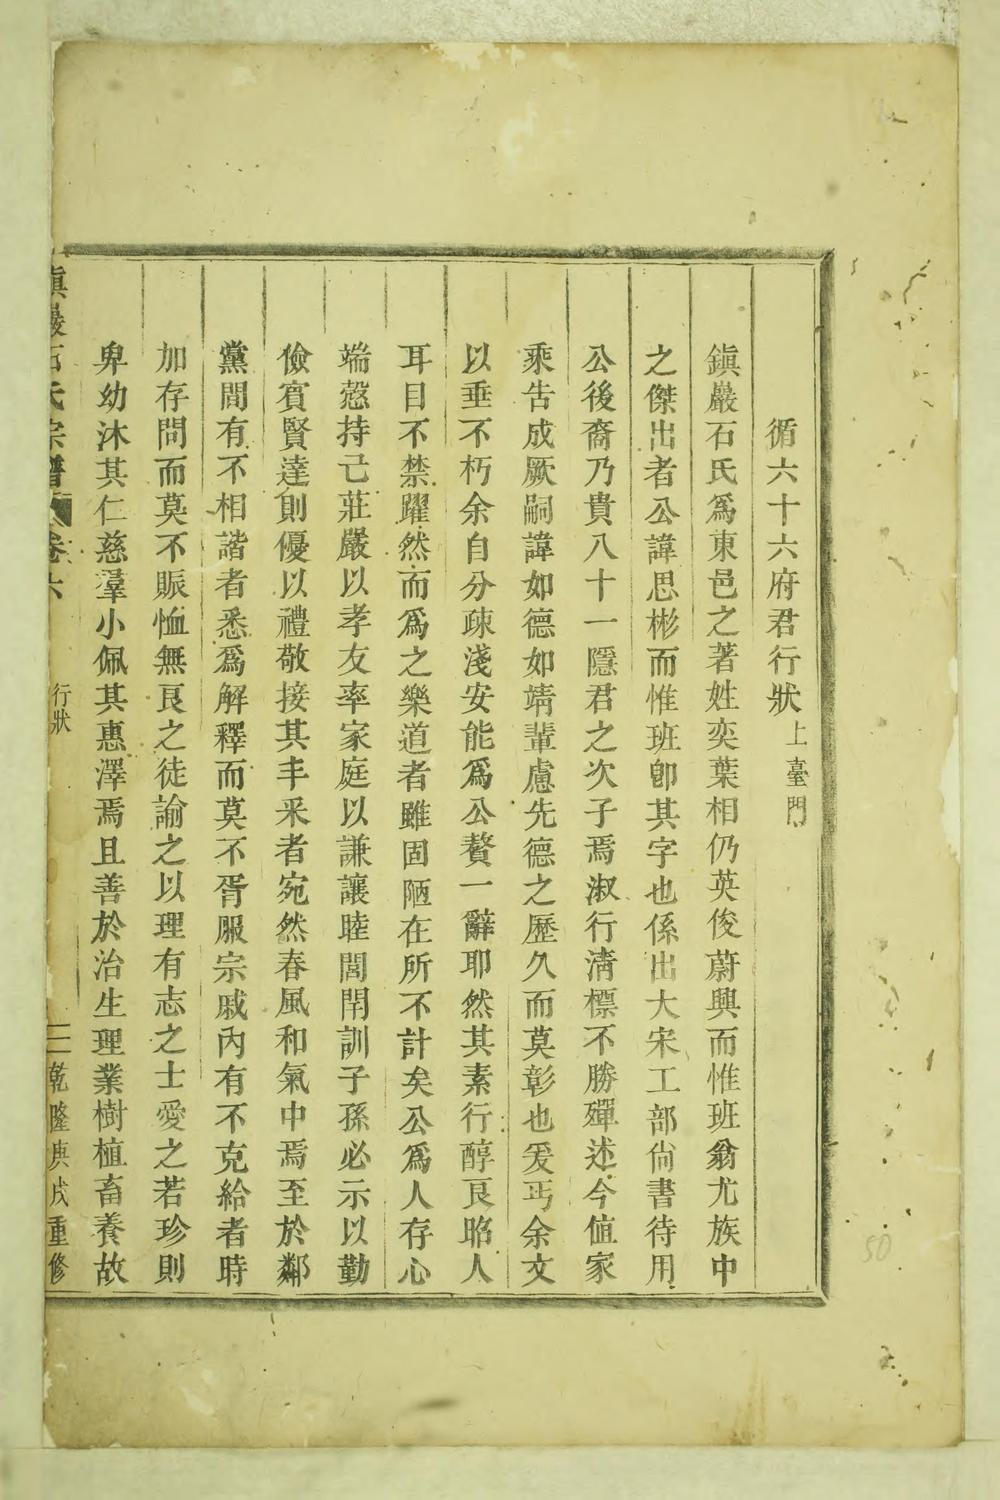 循六十六府君行狀上臺門
鎭巖石氏爲東邑之著姓奕葉相仍英俊蔚興而惟班翁尤族中
之傑出者公諱思彬而惟班卽其字也係出大宋工部尙書待用
公後裔乃貴八十一隱君之次子焉淑行淸標不勝殫述今値家
乘吿成厥嗣諱如德如靖輩慮先德之歷久而莫彰也爰丐余文
以垂不朽余自分疎淺安能爲公贅一辭耶然其素行醇良昭人
耳目不禁躍然而爲之樂道者雖固陋在所不計矣公爲人存心
端愨持己莊嚴以孝友率家庭以謙讓睦閭閈訓子孫必示以勤
儉賓賢達則優以禮敬接其丰采者宛然春風和氣中焉至於鄰
黨間有不相諧者悉爲解釋而莫不胥服宗戚內有不克給者時
加存問而莫不賑恤無良之徒諭之以理有志之士愛之若珍則
卑幼沐其仁慈羣小佩其惠澤焉且善於治生理業樹植畜養故
鎭巖石氏宗譜 卷六 行狀 二 乾隆庚戌重修
50